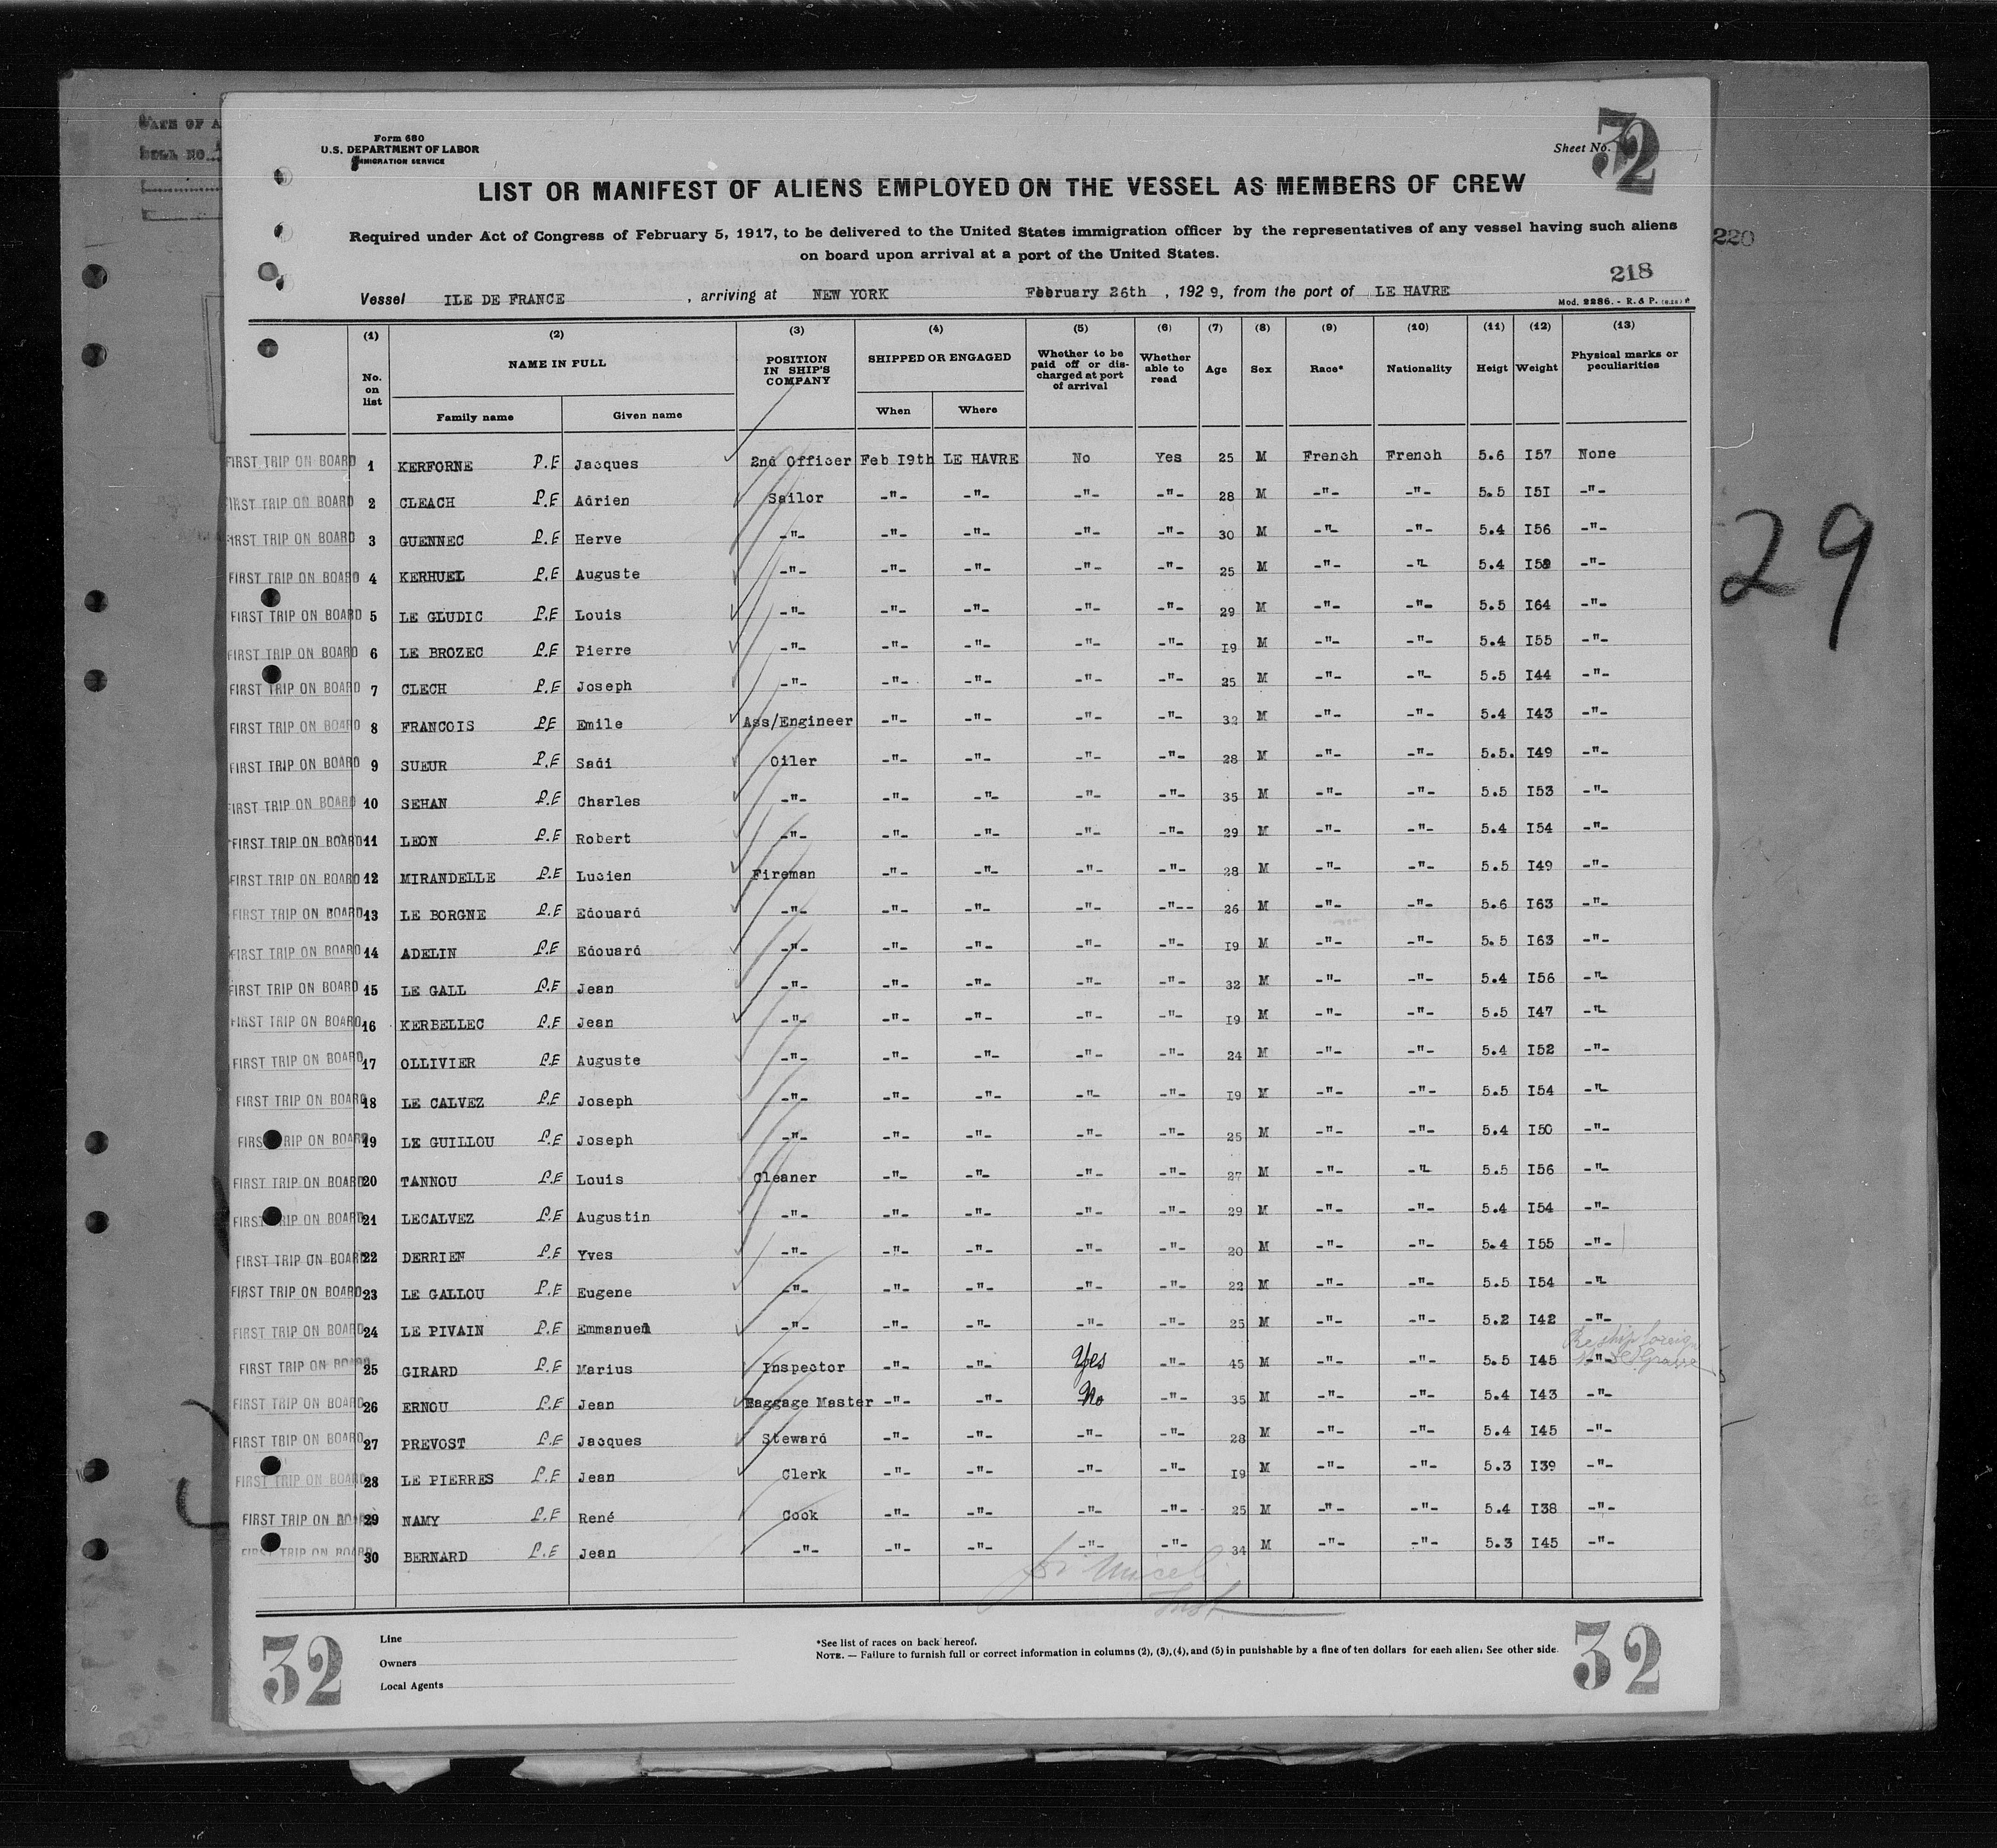 DATE OF A
Form 680
U.S. DEPARTMENT OF LABOR
IMMIGRATION SERVICE
Sheet No. 32
LIST OR MANIFEST OF ALIENS EMPLOYED ON THE VESSEL AS MEMBERS OF CREW
Required under Act of Congress of February 5, 1917, to be delivered to the United States immigration officer by the representatives of any vessel having such aliens
on board upon arrival at a port of the United States.
220
218
Vessel ILE DE FRANCE , arriving at NEW YORK February 26th , 1929, from the port of LE HAVRE
Mod. 2286. - R. & P.
(1) (2) (3) (4) (5) (6) (7) (8) (9) (10) (11) (12) (13)
No. on list NAME IN FULL Family name Given name POSITION IN SHIP'S COMPANY SHIPPED OR ENGAGED When Where Whether to be paid off or discharged at port of arrival Whether able to read Age Sex Race* Nationality Heigt Weight Physical marks or peculiarities
FIRST TRIP ON BOARD 1 KERFORNE P.E Jacques 2nd Officer Feb I9th LE HAVRE No Yes 25 M French French 5.6 I57 None
FIRST TRIP ON BOARD 2 CLEACH P.E Adrien Sailor -"- -"- -"- -"- 28 M -"- -"- 5.5 I5I -"-
FIRST TRIP ON BOARD 3 GUENNEC P.E Herve -"- -"- -"- -"- -"- 30 M -"- -"- 5.4 I56 -"-
FIRST TRIP ON BOARD 4 KERHUEL P.E Auguste -"- -"- -"- -"- -"- 25 M -"- -"- 5.4 -"-
FIRST TRIP ON BOARD 5 LE GLUDIC P.E Louis -"- -"- -"- -"- -"- 29 M -"- -"- 5.5 I64 -"-
FIRST TRIP ON BOARD 6 LE BROZEC P.E Pierre -"- -"- -"- -"- -"- I9 M -"- -"- 5.4 I55 -"-
FIRST TRIP ON BOARD 7 CLECH P.E Joseph -"- -"- -"- -"- -"- 25 M -"- -"- 5.5 I44 -"-
FIRST TRIP ON BOARD 8 FRANCOIS P.E Emile Ass/Engineer -"- -"- -"- -"- 32 M -"- -"- 5.4 I43 -"-
FIRST TRIP ON BOARD 9 SUEUR P.E Sadi Oiler -"- -"- -"- -"- 28 M -"- -"- 5.5. I49 -"-
FIRST TRIP ON BOARD 10 SEHAN P.E Charles -"- -"- -"- -"- -"- 35 M -"- -"- 5.5 I53 -"-
FIRST TRIP ON BOARD 11 LEON P.E Robert -"- -"- -"- -"- -"- 29 M -"- -"- 5.4 I54 -"-
FIRST TRIP ON BOARD 12 MIRANDELLE P.E Lucien Fireman -"- -"- -"- -"- 28 M -"- -"- 5.5 I49 -"-
FIRST TRIP ON BOARD 13 LE BORGNE P.E Edouard -"- -"- -"- -"- -"-- 26 M -"- -"- 5.6 I63 -"-
FIRST TRIP ON BOARD 14 ADELIN P.E Edouard -"- -"- -"- -"- -"- I9 M -"- -"- 5.5 I63 -"-
FIRST TRIP ON BOARD 15 LE GALL P.E Jean -"- -"- -"- -"- -"- 32 M -"- -"- 5.4 I56 -"-
FIRST TRIP ON BOARD 16 KERBELLEC P.E Jean -"- -"- -"- -"- -"- I9 M -"- -"- 5.5 I47 -"-
FIRST TRIP ON BOARD 17 OLLIVIER P.E Auguste -"- -"- -"- -"- -"- 24 M -"- -"- 5.4 I52 -"-
FIRST TRIP ON BOARD 18 LE CALVEZ P.E Joseph -"- -"- -"- -"- -"- I9 M -"- -"- 5.5 I54 -"-
FIRST TRIP ON BOARD 19 LE GUILLOU P.E Joseph -"- -"- -"- -"- -"- 25 M -"- -"- 5.4 I50 -"-
FIRST TRIP ON BOARD 20 TANNOU P.E Louis Cleaner -"- -"- -"- -"- 27 M -"- -"- 5.5 I56 -"-
FIRST TRIP ON BOARD 21 LECALVEZ P.E Augustin -"- -"- -"- -"- -"- 29 M -"- -"- 5.4 I54 -"-
FIRST TRIP ON BOARD 22 DERRIEN P.E Yves -"- -"- -"- -"- -"- 20 M -"- -"- 5.4 I55 -"-
FIRST TRIP ON BOARD 23 LE GALLOU P.E Eugene -"- -"- -"- -"- -"- 22 M -"- -"- 5.5 I54 -"-
FIRST TRIP ON BOARD 24 LE PIVAIN P.E Emmanuel -"- -"- -"- -"- -"- 25 M -"- -"- 5.2 I42 -"-
FIRST TRIP ON BOARD 25 GIRARD P.E Marius Inspector -"- -"- Yes -"- 45 M -"- -"- 5.5 I45 -"- Reship foreign
FIRST TRIP ON BOARD 26 ERNOU P.E Jean Baggage Master -"- -"- No -"- 35 M -"- -"- 5.4 I43 -"-
FIRST TRIP ON BOARD 27 PREVOST P.E Jacques Steward -"- -"- -"- -"- 28 M -"- -"- 5.4 I45 -"-
FIRST TRIP ON BOARD 28 LE PIERRES P.E Jean Clerk -"- -"- -"- -"- I9 M -"- -"- 5.3 I39 -"-
FIRST TRIP ON BOARD 29 NAMY P.E René Cook -"- -"- -"- -"- 25 M -"- -"- 5.4 I38 -"-
FIRST TRIP ON BOARD 30 BERNARD P.E Jean -"- -"- -"- -"- -"- 34 M -"- -"- 5.3 I45 -"-
29
32
Line
Owners
Local Agents
*See list of races on back hereof.
NOTE. — Failure to furnish full or correct information in columns (2), (3), (4), and (5) in punishable by a fine of ten dollars for each alien. See other side.
32